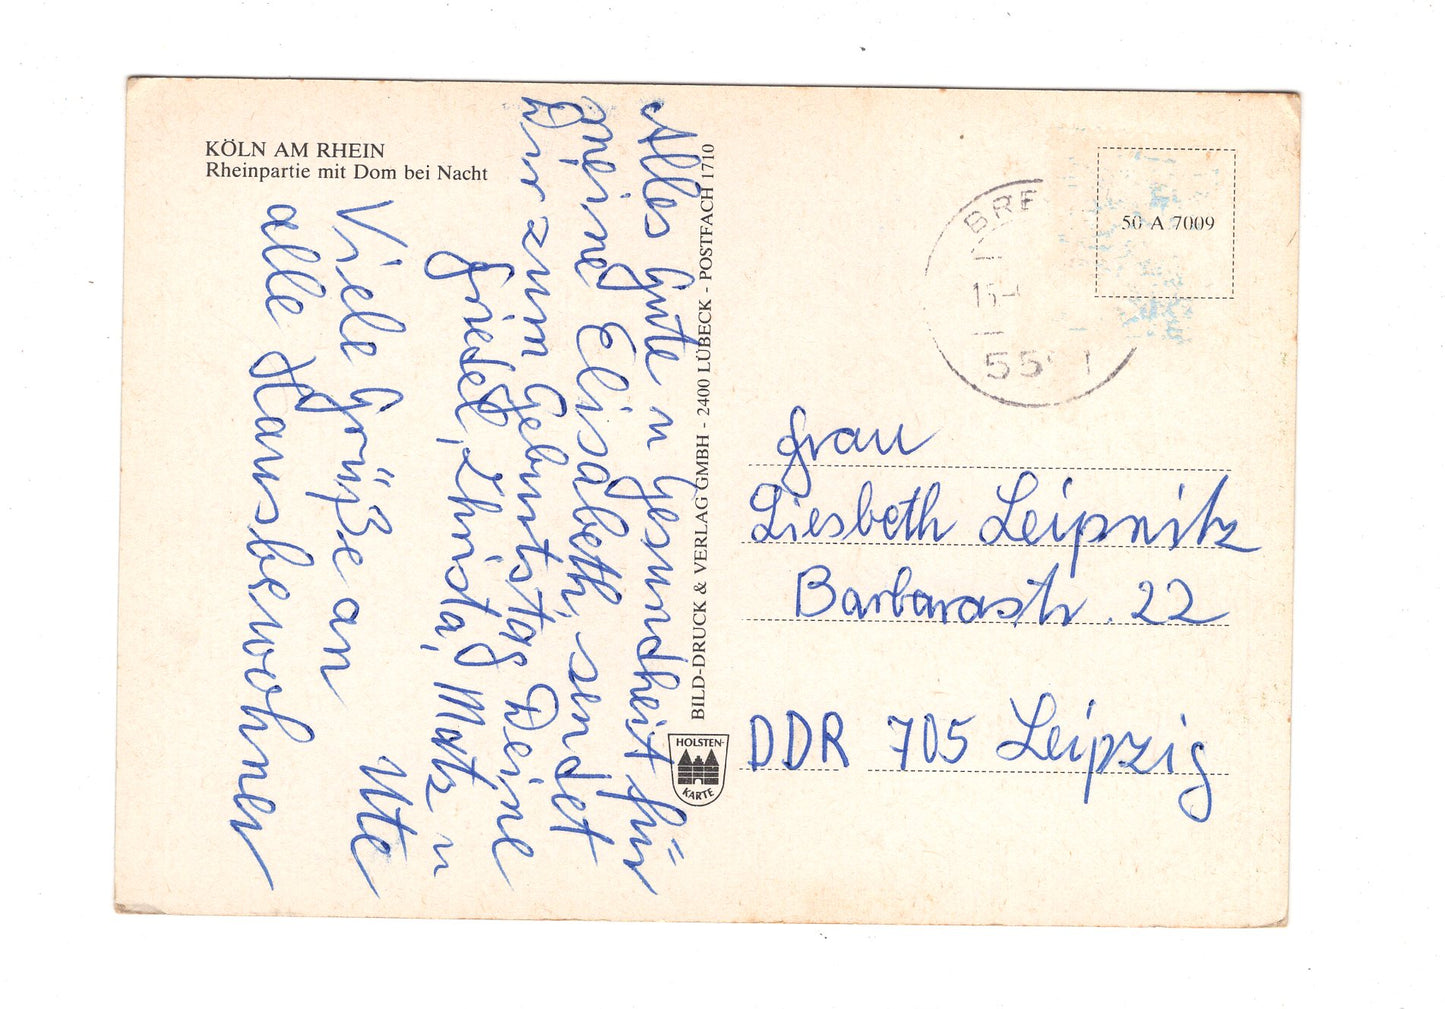 KÖLN AM RHEIN
Rheinpartie mit Dom bei Nacht
Alles Gute u Gesundheit für
meine Elisabeth, sendet
Dir zum Geburtstag Deine
Griedel, Christa, Matz u
Ute
Viele Grüße an
alle Hausbewohner
BILD-DRUCK & VERLAG GMBH - 2400 LÜBECK - POSTFACH 1710
HOLSTEN-
KARTE
50 A 7009
BRE
15
55
Frau
Liesbeth Leipnitz
Barbarastr. 22
DDR 705 Leipzig